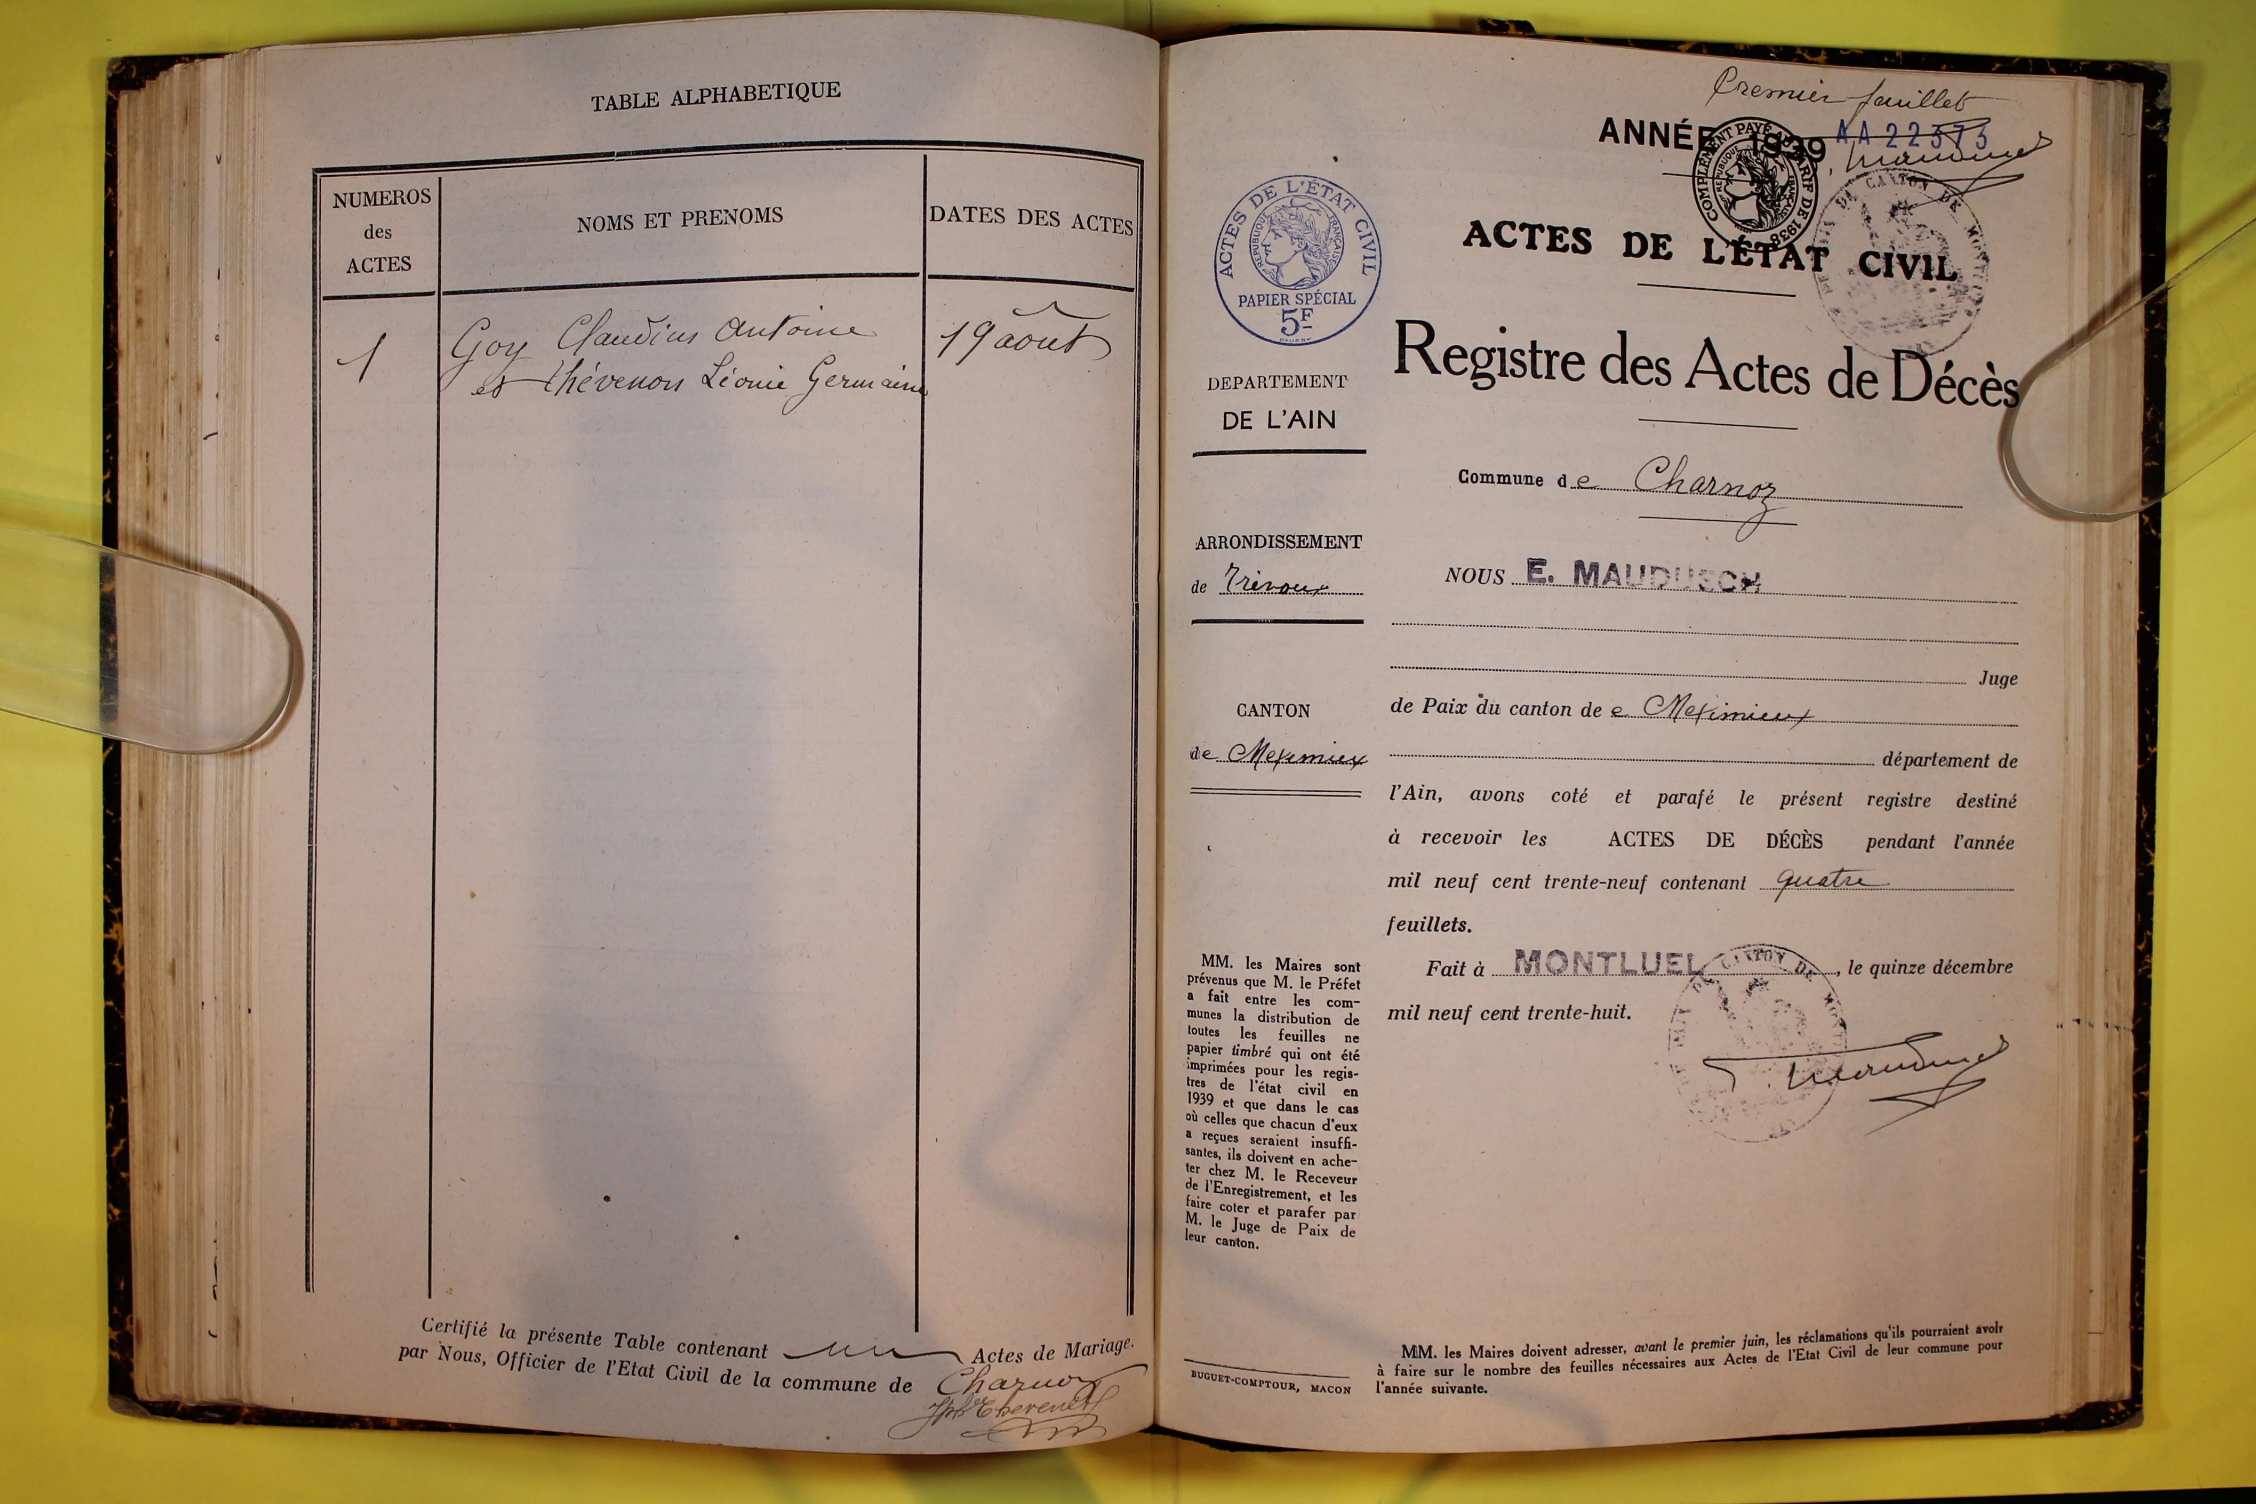 TABLE ALPHABETIQUE
NUMEROS
des
ACTES
NOMS ET PRENOMS
DATES DES ACTES
1
Goy Claudius Antoine
et Thévenon Léonie Germaine
19 août
Certifié la présente Table contenant un Actes de Mariage.
par Nous, Officier de l'Etat Civil de la commune de Charnoz
Premier feuillet
ANNÉE 1939
AA 22373
COMPLÉMENT PAYÉ AU TARIF DE 1938
RÉPUBLIQUE FRANÇAISE
ACTES DE L'ÉTAT CIVIL
RÉPUBLIQUE FRANÇAISE
PAPIER SPÉCIAL
5F
DEPARTEMENT
DE L'AIN
ARRONDISSEMENT
de Trévoux
CANTON
de Meximieux
MM. les Maires sont
prévenus que M. le Préfet
a fait entre les com-
munes la distribution de
toutes les feuilles ne
papier timbré qui ont été
imprimées pour les regis-
tres de l'état civil en
1939 et que dans le cas
où celles que chacun d'eux
a reçues seraient insuffi-
santes, ils doivent en ache-
ter chez M. le Receveur
de l'Enregistrement, et les
faire coter et parafer par
M. le Juge de Paix de
leur canton.
BUGUET-COMPTOUR, MACON
ACTES DE L'ÉTAT CIVIL
Registre des Actes de Décès
Commune de Charnoz
NOUS E. MAUDUSCH
Juge
de Paix du canton de e Meximieux
département de
l'Ain, avons coté et parafé le présent registre destiné
à recevoir les ACTES DE DÉCÈS pendant l'année
mil neuf cent trente-neuf contenant quatre
feuillets.
Fait à MONTLUEL, le quinze décembre
mil neuf cent trente-huit.
CANTON DE
MM. les Maires doivent adresser, avant le premier juin, les réclamations qu'ils pourraient avoir
à faire sur le nombre des feuilles nécessaires aux Actes de l'Etat Civil de leur commune pour
l'année suivante.